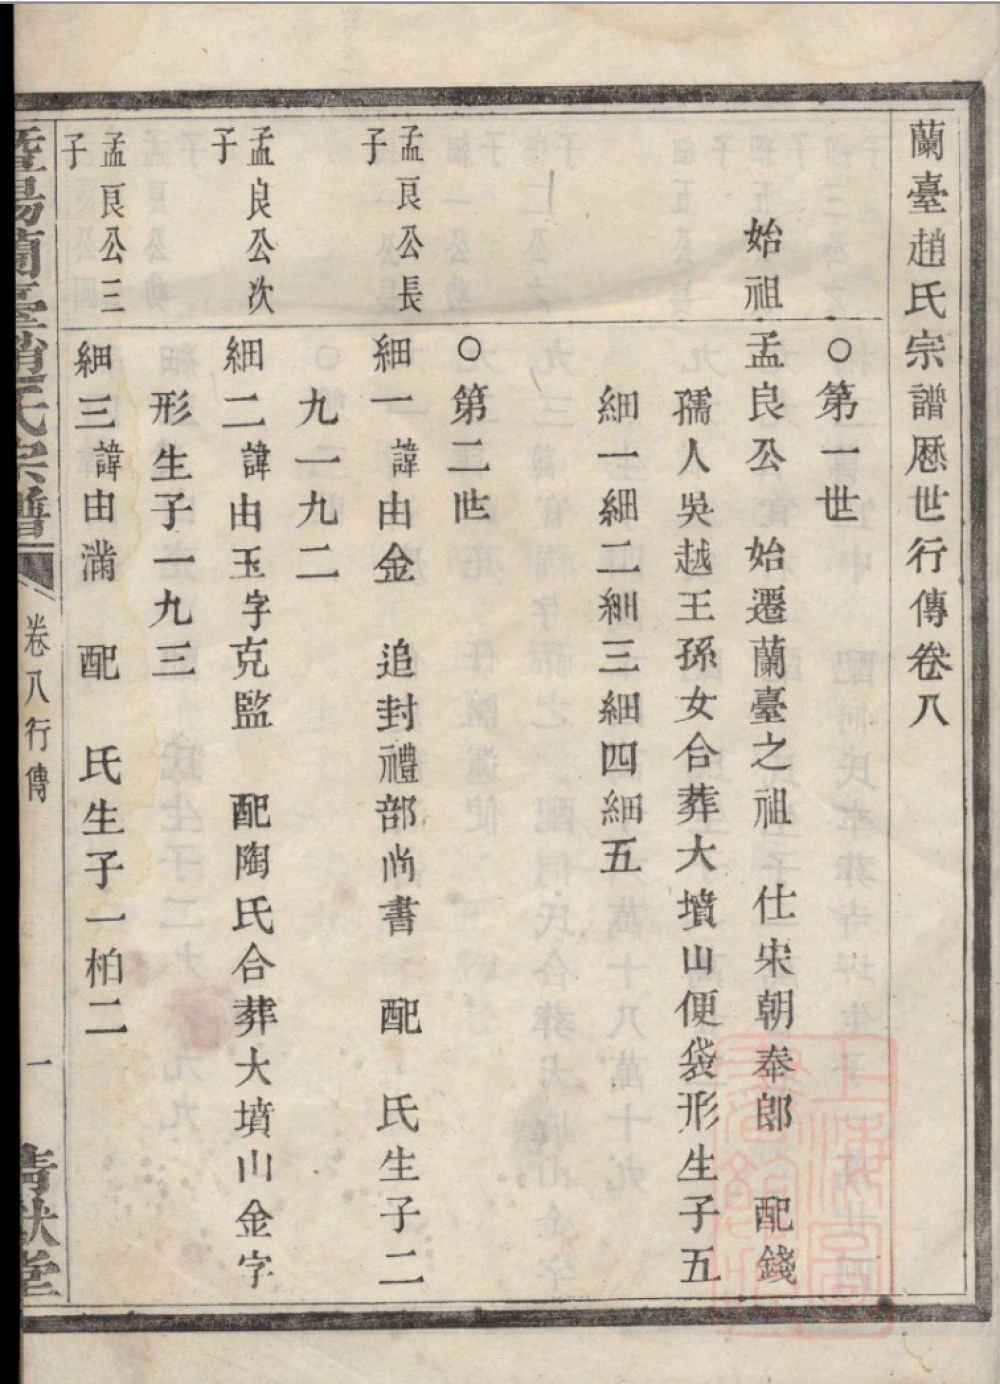 蘭臺趙氏宗譜厯世行傳卷八
○第一世
始祖孟良公 始遷蘭臺之祖 仕宋朝奉郎 配錢
孺人吳越王孫女合葬大墳山便袋形生子五
細一細二細三細四細五
○第二世
孟良公長子
細一諱由金 追封禮部尚書 配 氏生子二
九一九二
孟良公次子
細二諱由玉字克監 配陶氏合葬大墳山金字
形生子一九三
孟良公三子
細三諱由滿 配 氏生子一柏二
暨陽蘭臺趙氏宗譜
卷八行傳
一
清獻堂